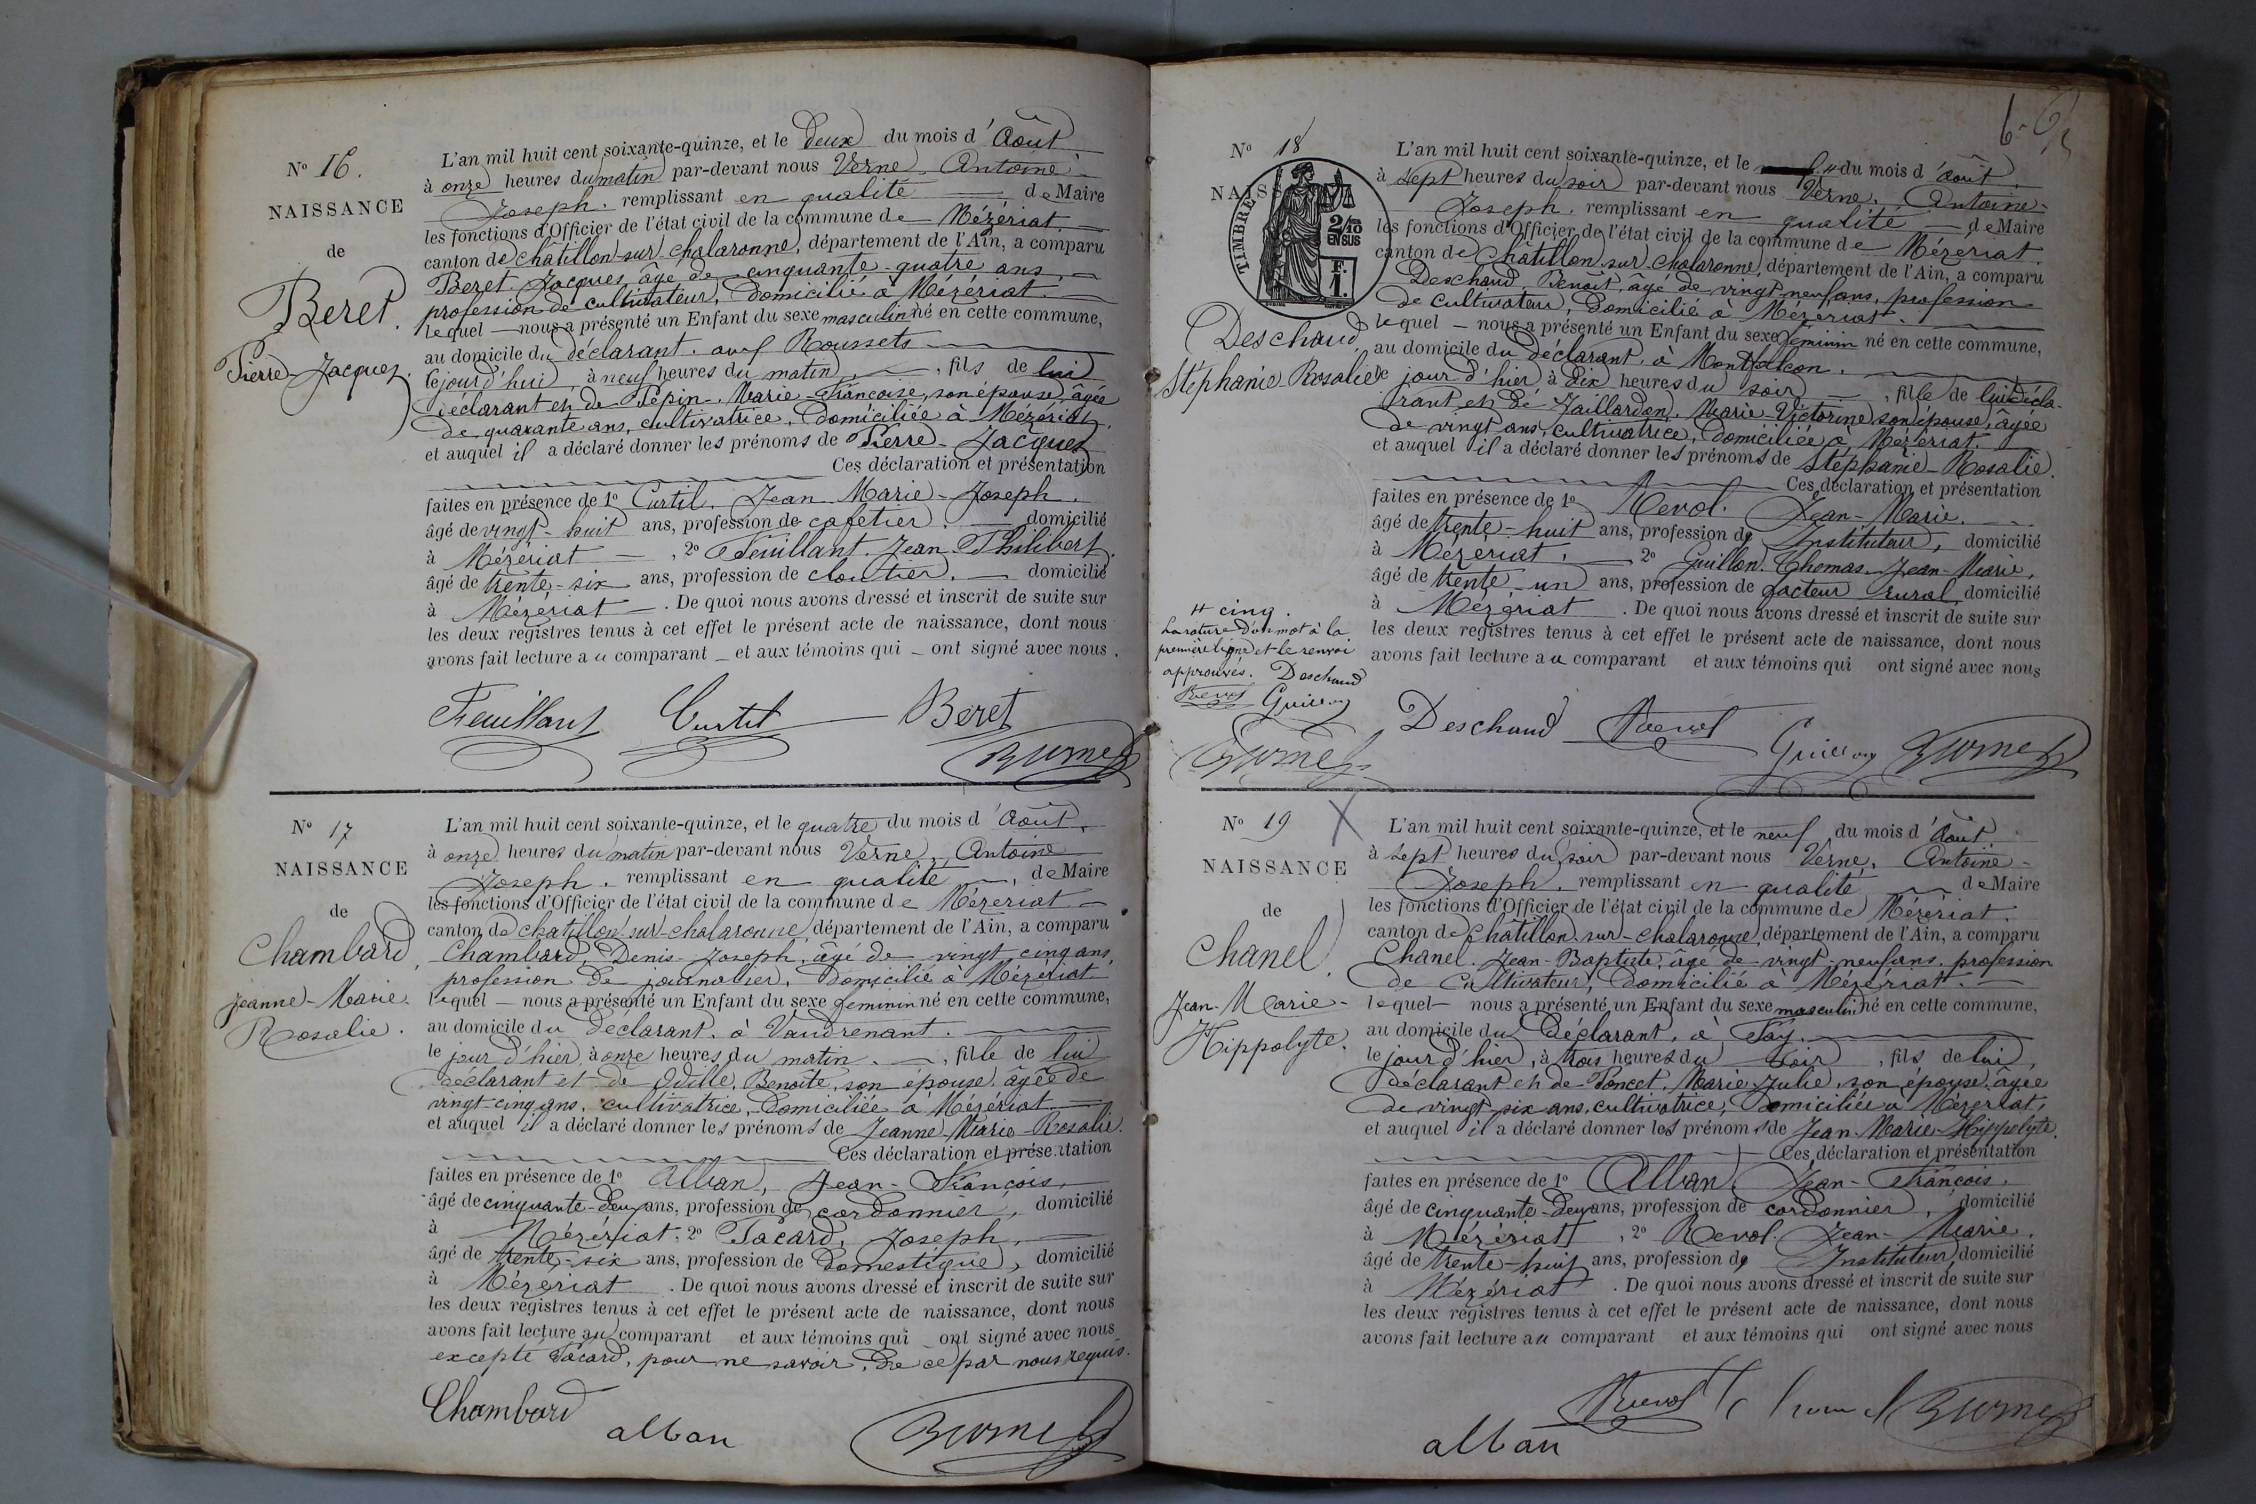 N° 16.
NAISSANCE
de
Beret.
Pierre-Jacques.
L'an mil huit cent soixante-quinze, et le deux du mois d'Août
à onze heures du matin par-devant nous Verne Antoine-
Joseph. remplissant en qualité de Maire
les fonctions d'Officier de l'état civil de la commune de Mézériat.
canton de châtillon-sur-chalaronne, département de l'Ain, a comparu
Beret. Jacques, âgé de cinquante-quatre ans,
profession de cultivateur, domicilié à Mézériat.
lequel nous a présenté un Enfant du sexe masculin né en cette commune,
au domicile du déclarant. aux Roussets
le jour d'hui, à neuf heures du matin, fils de lui
déclarant et de Pépin. Marie-Françoise, son épouse, âgée
de quarante ans, cultivatrice, domiciliée à Mézériat.
et auquel il a déclaré donner les prénoms de Pierre-Jacques
Ces déclaration et présentation
faites en présence de 1° Curtil. Jean Marie-Joseph.
âgé de vingt-huit ans, profession de cafetier. domicilié
à Mézériat, 2° Feuillant. Jean Philibert.
âgé de trente-six ans, profession de cloutier. domicilié
à Mézériat. De quoi nous avons dressé et inscrit de suite sur
les deux registres tenus à cet effet le présent acte de naissance, dont nous
avons fait lecture au comparant et aux témoins qui ont signé avec nous.
Feuillant Curtil Beret
N° 17
NAISSANCE
de
Chambard,
Jeanne-Marie.
Rosalie.
L'an mil huit cent soixante-quinze, et le quatre du mois d'Août.
à onze heures du matin par-devant nous Verne, Antoine
Joseph. remplissant en qualité, de Maire
les fonctions d'Officier de l'état civil de la commune de Mézériat
canton de châtillon-sur-chalaronne, département de l'Ain, a comparu
Chambard, Denis-Joseph, âgé de vingt cinq ans,
profession de journalier, domicilié à Mézériat
lequel nous a présenté un Enfant du sexe féminin né en cette commune,
au domicile du déclarant. à Vaudrenant.
le jour d'hier à onze heures du matin. , fille de lui
déclarant et de Odille, Benoîte, son épouse âgée de
vingt-cinq ans, cultivatrice, domiciliée à Mézériat
et auquel il a déclaré donner les prénoms de Jeanne-Marie-Rosalie.
Ces déclaration et présentation
faites en présence de 1° Alban, Jean-François,
âgé de cinquante-deux ans, profession de cordonnier, domicilié
à Mézériat. 2° Pacard, Joseph,
âgé de trente-six ans, profession de domestique, domicilié
à Mézériat. De quoi nous avons dressé et inscrit de suite sur
les deux registres tenus à cet effet le présent acte de naissance, dont nous
avons fait lecture au comparant et aux témoins qui ont signé avec nous
excepté Pacard, pour ne savoir, de ce par nous requis.
Chambard
alban
N° 18
NAISS
TIMBRE
2/10
EN SUS
F.
1.
Deschaud,
Stéphanie-Rosalie
L'an mil huit cent soixante-quinze, et le du mois d'Août.
à sept heures du soir par-devant nous Verne, Antoine-
Joseph. remplissant en qualité de Maire
les fonctions d'Officier de l'état civil de la commune de Mézériat.
canton de Châtillon-sur-chalaronne, département de l'Ain, a comparu
Deschaud, Benoît, âgé de vingt neuf ans, profession
de cultivateur, domicilié à Mézériat.
lequel nous a présenté un Enfant du sexe féminin né en cette commune,
au domicile du déclarant, à Montfalcon.
le jour d'hier, à dix heures du soir, fille de lui décla-
rant et de Jaillardon, Marie-Victorine, son épouse, âgée
de vingt ans, cultivatrice, domiciliée à Mézériat.
et auquel il a déclaré donner les prénoms de Stéphanie-Rosalie.
Ces déclaration et présentation
faites en présence de 1° Revol. Jean-Marie.
âgé de trente-huit ans, profession de Instituteur, domicilié
à Mézériat, 2° Guillon. Thomas-Jean-Marie,
âgé de trente-un ans, profession de facteur rural, domicilié
à Mézériat. De quoi nous avons dressé et inscrit de suite sur
les deux registres tenus à cet effet le présent acte de naissance, dont nous
avons fait lecture au comparant et aux témoins qui ont signé avec nous
cinq.
La rature d'un mot à la
première ligne et le renvoi
approuvés. Deschaud
Revol Guillon
Deschaud Revol Guillon
N° 19 X
NAISSANCE
de
Chanel.
Jean-Marie-
Hippolyte.
L'an mil huit cent soixante-quinze, et le neuf du mois d'Août
à sept heures du soir par-devant nous Verne, Antoine-
Joseph. remplissant en qualité de Maire
les fonctions d'Officier de l'état civil de la commune de Mézériat.
canton de châtillon-sur-chalaronne, département de l'Ain, a comparu
Chanel. Jean-Baptiste, âgé de vingt-neuf ans, profession
de Cultivateur, domicilié à Mézériat.
lequel nous a présenté un Enfant du sexe masculin né en cette commune,
au domicile du déclarant, à Tay.
le jour d'hier, à trois heures du soir, fils de lui,
déclarant et de Poncet. Marie Julie, son épouse, âgée
de vingt six ans, cultivatrice, domiciliée à Mézériat,
et auquel il a déclaré donner les prénoms de Jean-Marie-Hippolyte.
Ces déclaration et présentation
faites en présence de 1° Alban, Jean-François,
âgé de cinquante-deux ans, profession de cordonnier, domicilié
à Mézériat, 2° Revol. Jean-Marie.
âgé de trente-huit ans, profession de Instituteur, domicilié
à Mézériat. De quoi nous avons dressé et inscrit de suite sur
les deux registres tenus à cet effet le présent acte de naissance, dont nous
avons fait lecture au comparant et aux témoins qui ont signé avec nous
Revol
alban